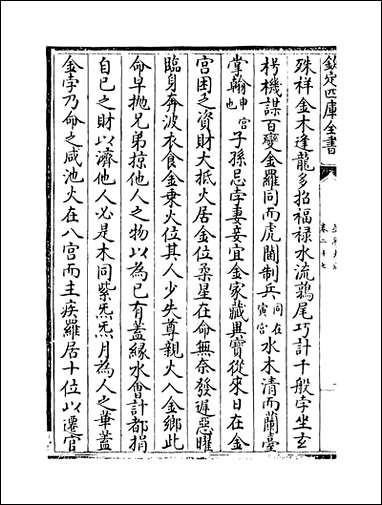 欽定四庫全書
殊祥金木逢龍多招福祿水流鶉尾巧計千般孛坐玄
枵機謀百變金羅同而虎闘制兵同在寅宮水木清而蘭臺
掌翰申宮也子孫忌孛妻妾宜金家藏異寶從來日在金
宮困乏資財大抵火居金位桑星在命無奈發遲惡曜
臨身奔波衣食金乗火位其人少失尊親火入金鄉此
命早抛兄弟掠他人之物以為已有蓋緣水會計都捐
自已之財以濟他人必是木同紫炁炁月為人之華蓋
金孛乃命之咸池火在八宮而主疾羅居十位以遷官